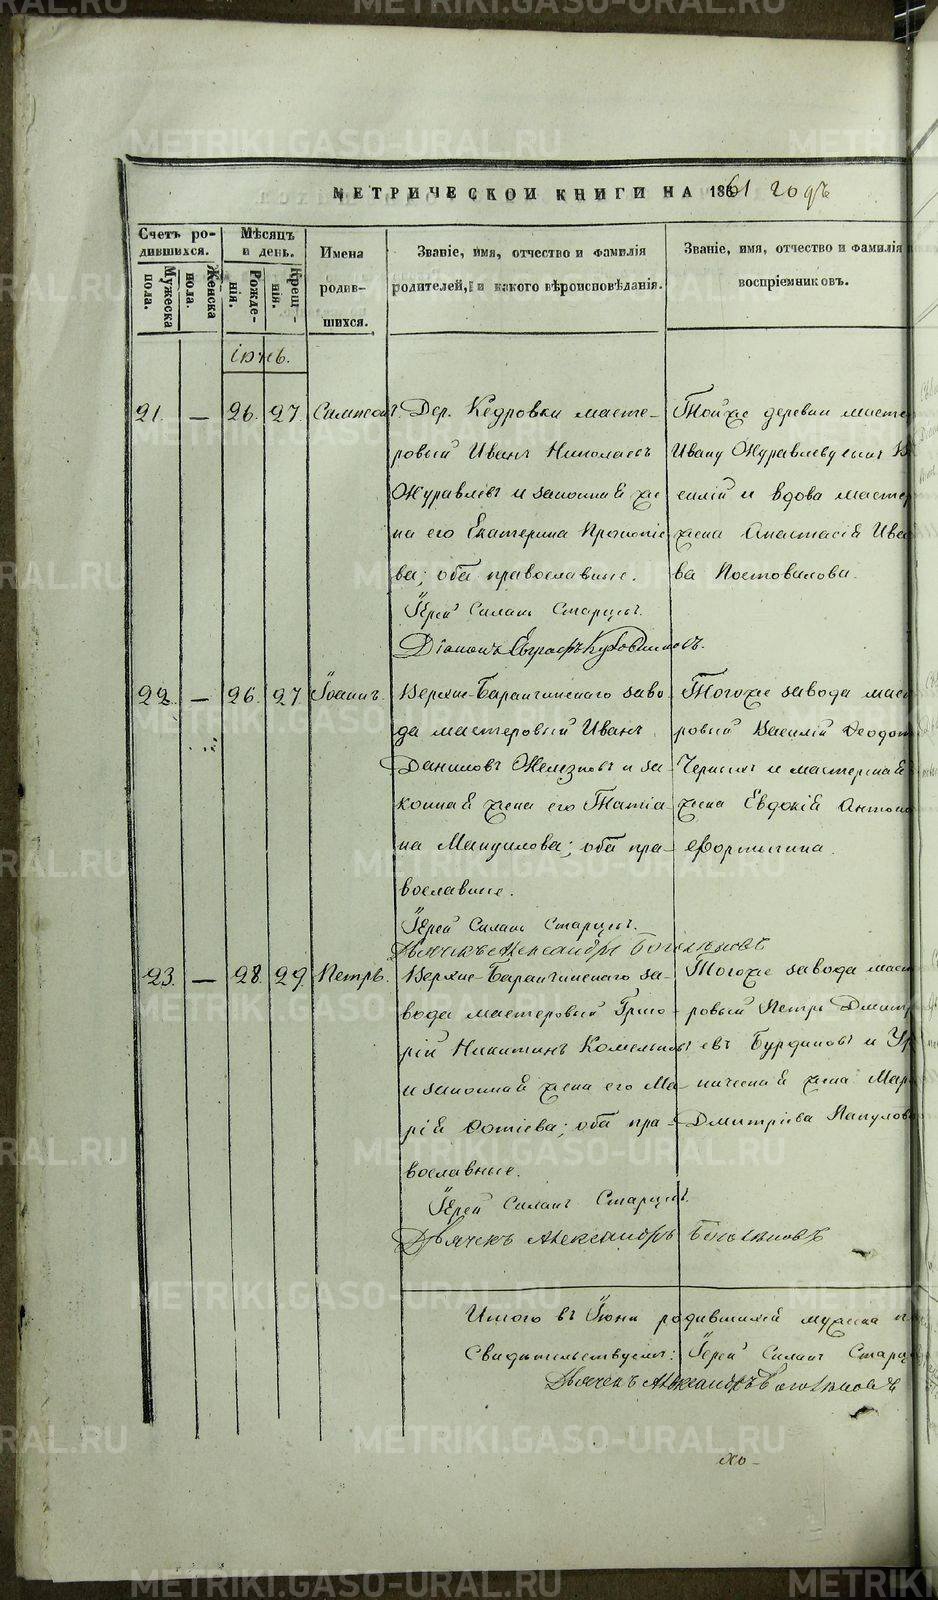 МЕТРИЧЕСКОЙ КНИГИ НА 1861 годъ
Счетъ ро-
дившихся.
Мужеска
пола.
Женска
пола.
Мѣсяцъ
и день.
Рожде-
нія.
Крещ-
нія.
Имена
родив-
шихся.
Званіе, имя, отчество и фамилія
родителей, и какого вѣроисповѣданія.
Званіе, имя, отчество и фамилія
воспріемниковъ.
Іюнь.
21. — 26. 27. Сампсонъ.
Дер. Кедровки масте-
ровый Иванъ Николаевъ
Журавлевъ и законная же
на его Екатерина Прокопіе
ва; оба православные.
Іерей Силанъ Старцевъ.
Діаконъ Евграфъ
Тойже деревни масте
Ивану Журавлеву сынъ Ва
силій и вдова мастер
жена Анастасія Ива
ва Постовалова.
22. — 26. 27. Іоаннъ.
Верхне-Баранчинскаго заво
да мастеровый Иванъ
Даниловъ Железновъ и за-
конная жена его Татіа-
на Мануилова; оба пра-
вославные.
Іерей Силанъ Старцевъ.
Дьячекъ Александръ Боголѣповъ
Тогоже завода масте
ровый Василій Ѳедот
Черныхъ и мастерская
жена Евдокія Антоно
23. — 28. 29. Петръ.
Верхне-Баранчинскаго за-
вода мастеровый Григо-
рій Никитинъ
и законная жена его Ма-
рія Фотіева; оба пра-
вославные.
Іерей Силанъ Старцевъ.
Дьячекъ Александръ Боголѣповъ
Тогоже завода масте
ровый Петръ Дмитр
евъ Бурдаковъ и Ур
ническая жена Мар
Дмитріева Папулова
Итого въ Іюнѣ родившихся мужска п
Свидѣтельствуемъ: Іерей Силанъ Старце
Дьячекъ Александръ Боголѣповъ